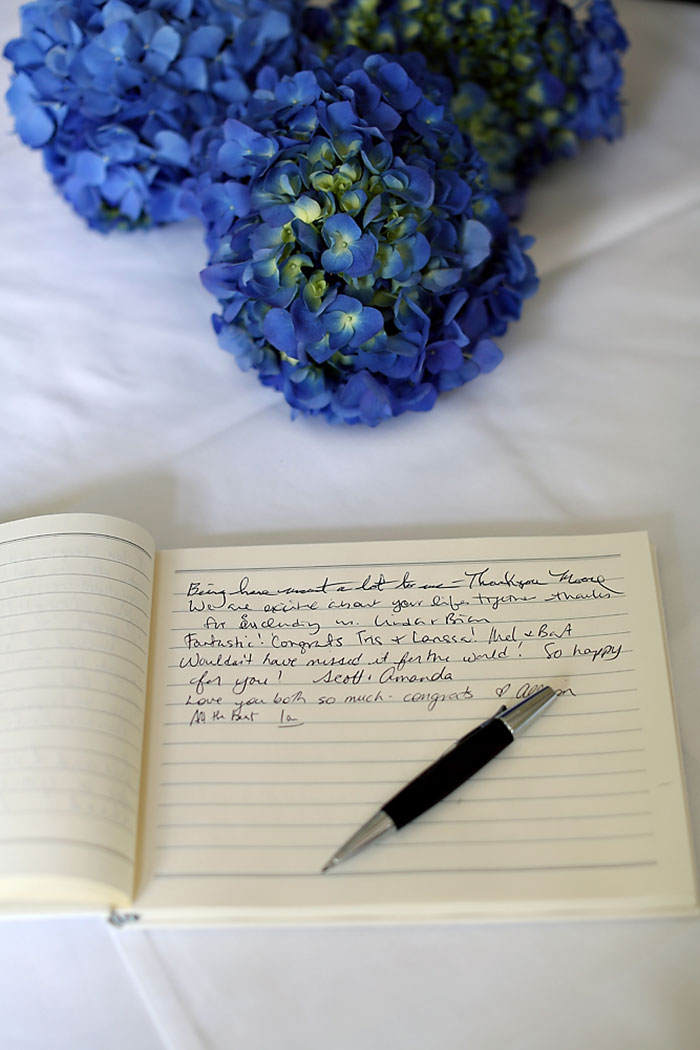 Being here meant a lot to me - Thank you
We are excite about your life together thanks
for including us. Linda + Brian
Fantastic! Congrats Tris + Larissa! Mel + Bart
Wouldn't have missed it for the world! So happy
for you! Scott & Amanda
Love you both so much - congrats ♡
All the Best Ian